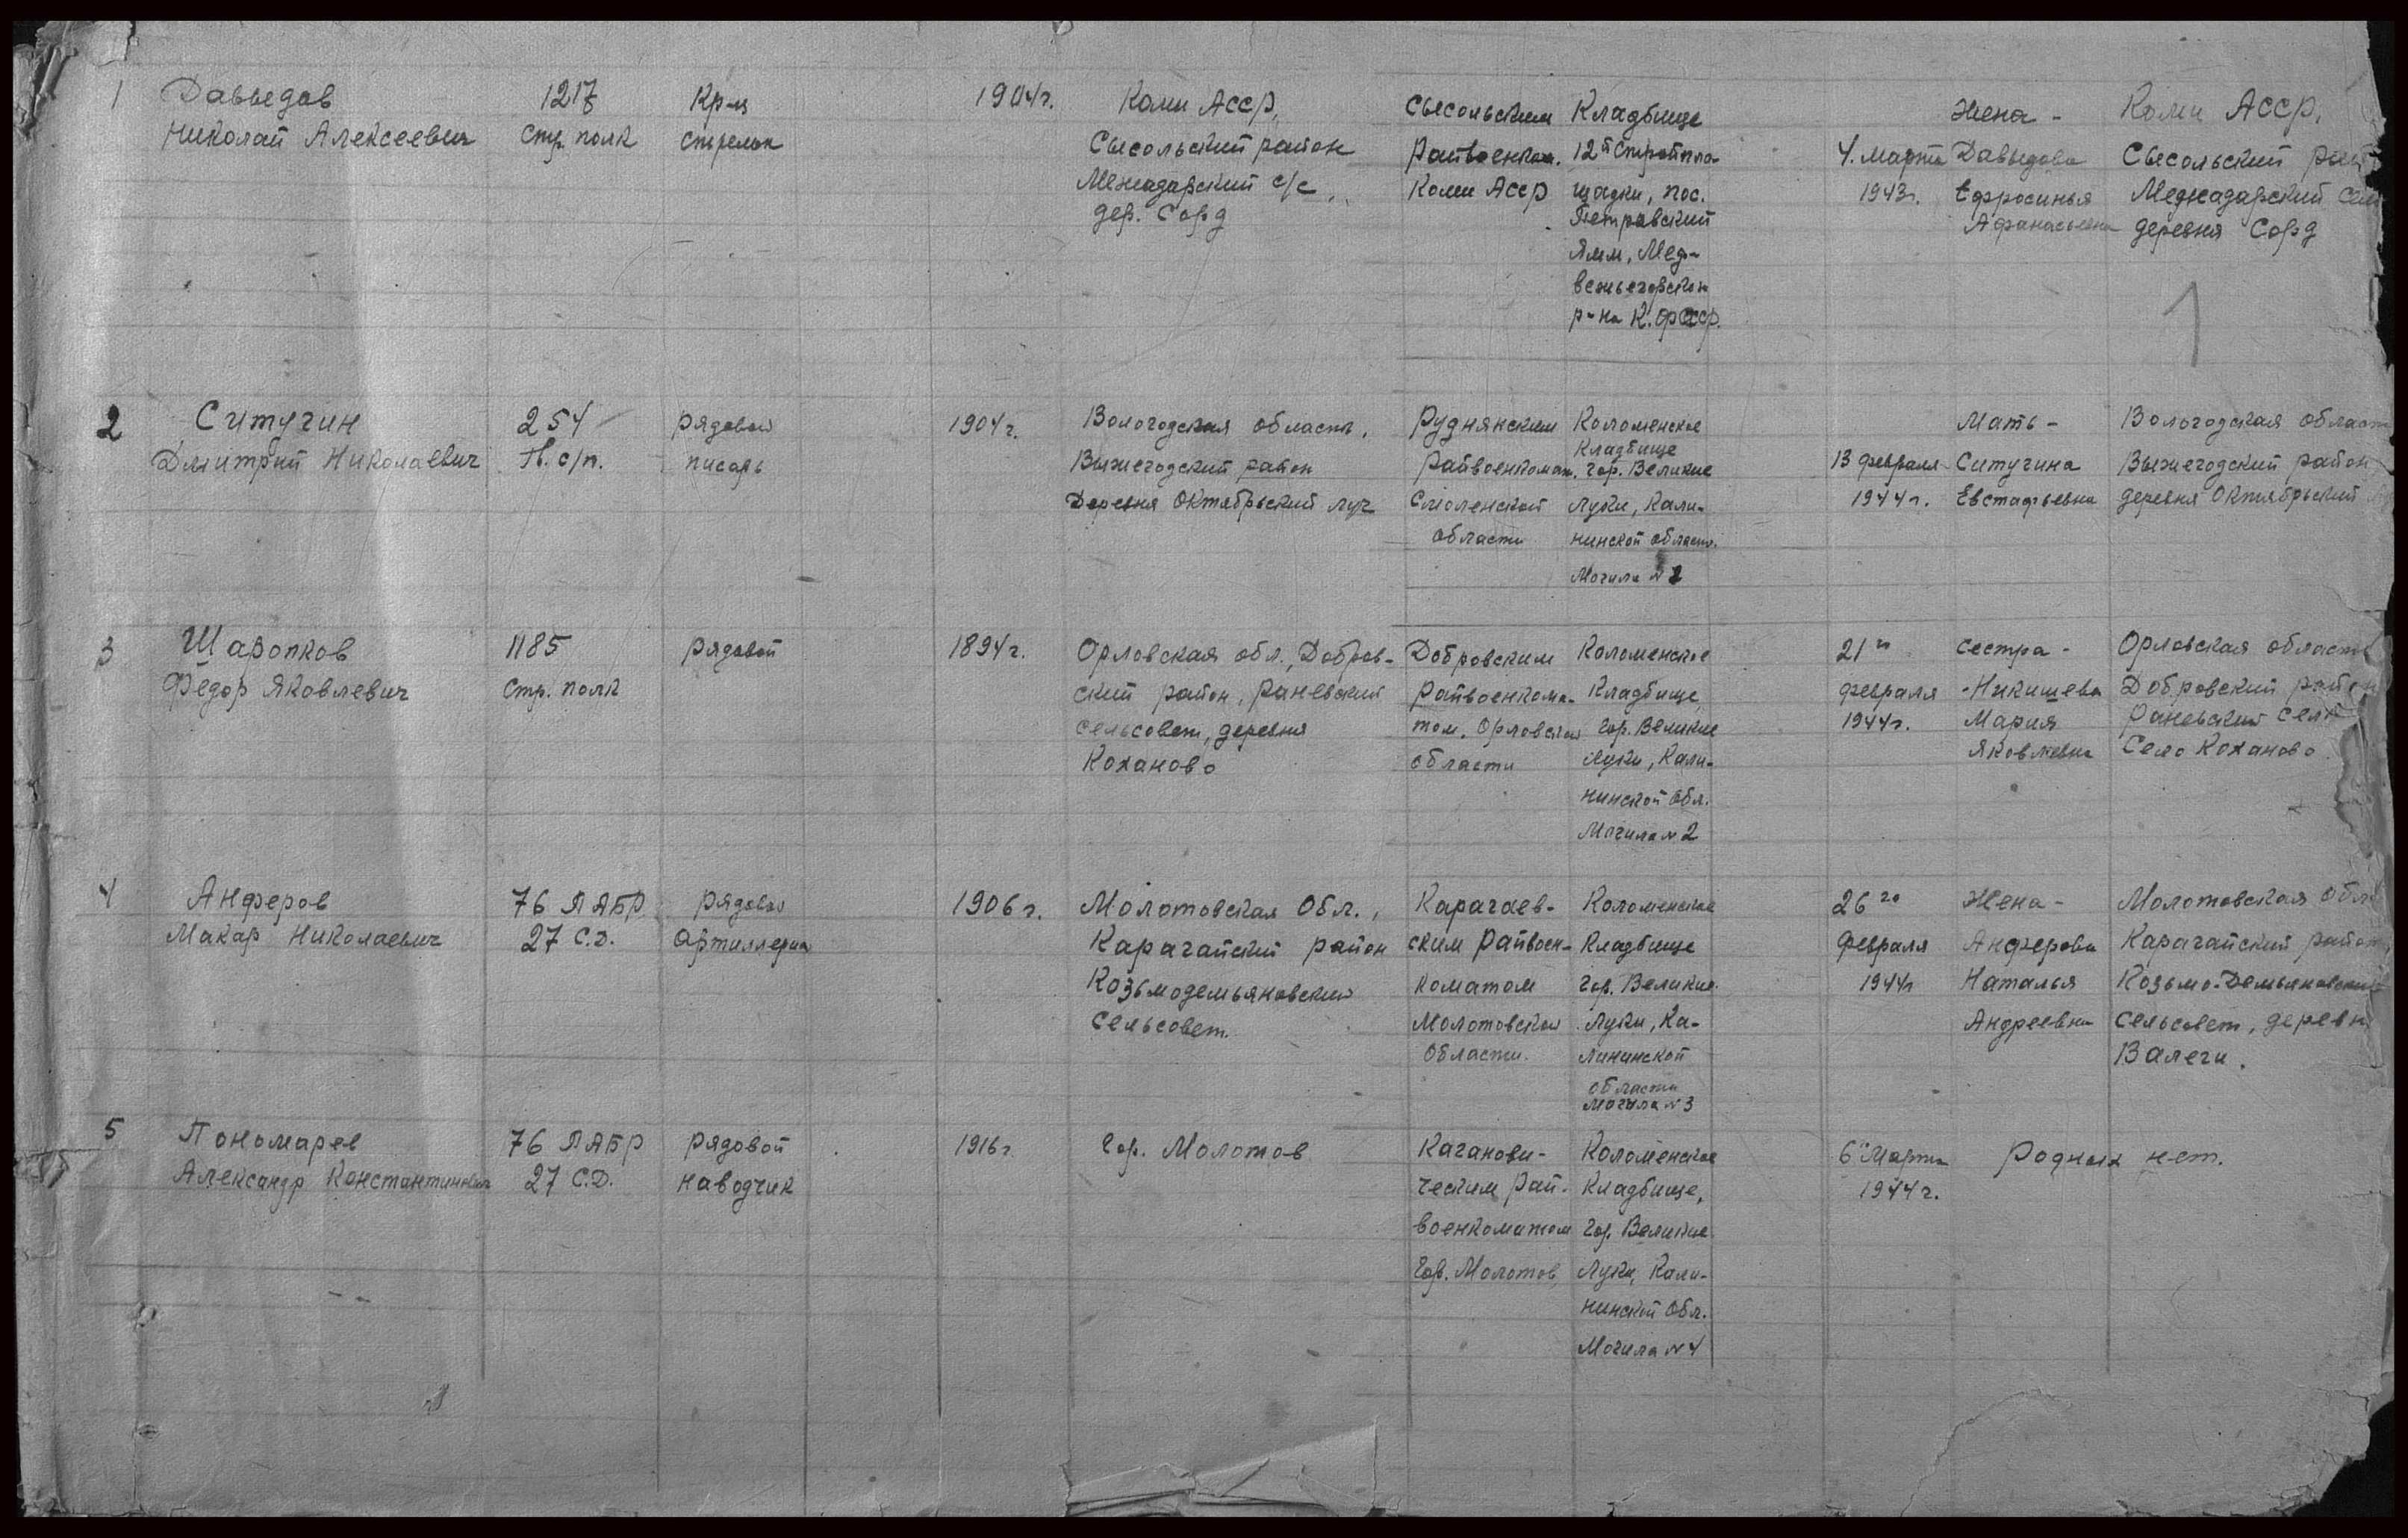 1 Давыдов 1217 Кр-ц 1904г. Коми Асср, Сысольским Кладбище Жена - Коми Асср,
Николай Алексеевич стр. полк стрелок Сысольский район Райвоенком. 12й Стройпло- 4. марта Давыдова Сысольский рай
Межадарский с/с, Коми Асср щадки, пос. 1943г. Ефросинья Межадарский сел
дер. Сорд Петровский Афанасьевна деревня Сорд
Ямм, Мед-
вежьегорском
р-на К.ФССР.
1
2 Ситугин 254 рядовой 1904г. Вологодская область, Руднянским Коломенское Мать - Вологодская област
Дмитрий Николаевич Гв. с/п. писарь Вожегодский район Райвоенкомат. Кладбище гор. Великие 13 февраля Ситугина Вожегодский район
Деревня Октябрьский луч Смоленской Луки, Кали- 1944г. Евстафьевна деревня Октябрьский
области нинской област.
Могила № 1
3 Шаропков 1185 рядовой 1894г. Орловская обл., Добров- Добровским Коломенское 21го сестра - Орловская область
Федор Яковлевич Стр. полк ский район, Раневский Райвоенкома- Кладбище, февраля -Никишева Добровский район
сельсовет, деревня том. Орловской гор. Великие 1944г. Мария Раневский сел
Коханово области Луки, Кали- Яковлевна Село Коханово
нинской обл.
Могила № 2
4 Анферов 76 ЛАБР рядовой 1906г. Молотовская Обл., Карагаев- Коломенское 26го Жена - Молотовская Обл
Макар Николаевич 27 С.Д. Артиллерия Карагайский район ским Райвоен- Кладбище февраля Анферова Карагайский район,
Козьмодемьяновский коматом гор. Великие 1944г Наталья Козьмо-Демьяновский
Сельсовет. Молотовской Луки, Ка- Андреевна Сельсовет, деревн
Области. лининской Валеги.
области
Могила № 3
5 Пономарев 76 ЛАБР рядовой 1916г. Гор. Молотов Каганови- Коломенское 6го Марта Родных нет.
Александр Константинович 27 С.Д. наводчик ческим Рай- Кладбище, 1944г.
военкоматом Гор. Великие
Гор. Молотов, Луки, Кали-
нинской Обл.
Могила № 4